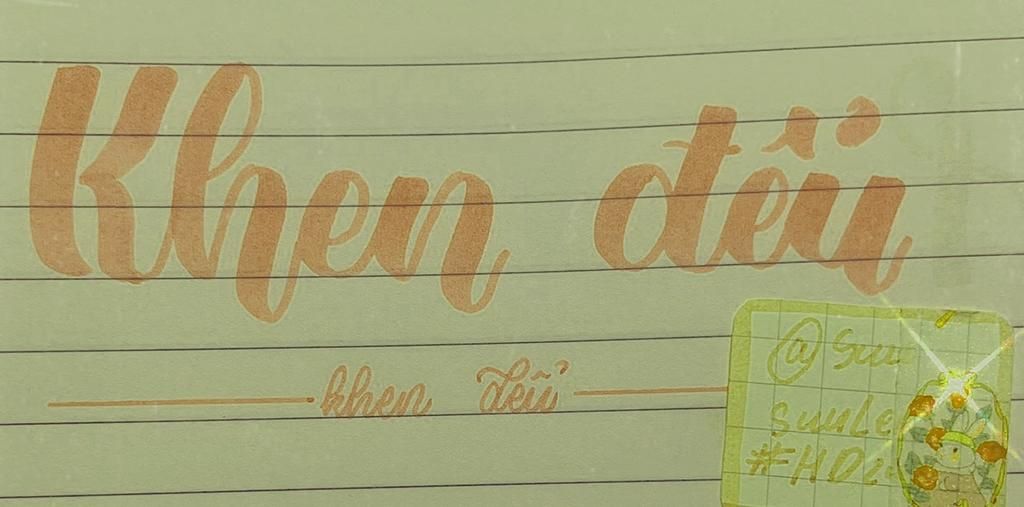 Khen đểu
khen đểu
@Suu
SuuLe
#HD